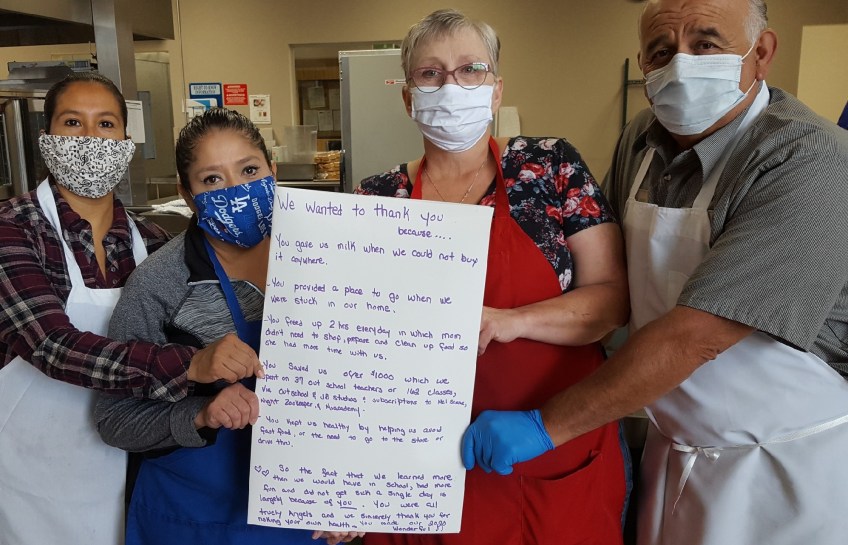 We wanted to thank you
because....
You gave us milk when we could not buy
it anywhere.
-You provided a place to go when we
were stuck in our home.
-You freed up 2 hrs everyday in which mom
didn't need to shop, prepare and clean up food so
she had more time with us.
You saved us over $1000 which we
spent on 37 out school teachers or 162 classes,
via outschool & JB studios & subscriptions to
Night Zookeeper, &
You kept us healthy by helping us avoid
fast food, or the need to go to the store or
drive thru.
♡♡ So the fact that we learned more
then we would have in school, had more
fun and did not get sick a single day is
largely because of you. You were all
truely Angels and we sincerely thank you for
risking your own health - you made our 2020
Wonderful !!
LA
Dodgers